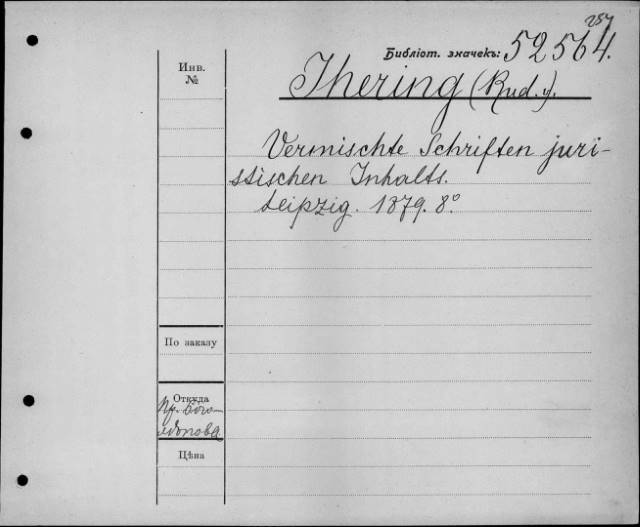 257
Библіот. значекъ: 52564.
Инв.
№
Jhering (Rud. v).
Vermischte Schriften juri-
stischen Inhalts.
Leipzig. 1879. 8°.
По заказу
Откуда
Пр. Бого-
лѣпова
Цѣна